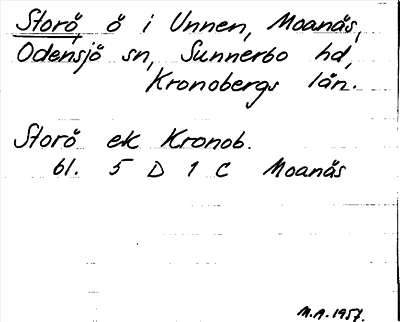 Storö ö i Unnen, Moanäs,
Odensjö sn, Sunnerbo hd,
Kronobergs län.
Storö ek Kronob.
bl. 5 D 1 C Moanäs
M.A. 1957.